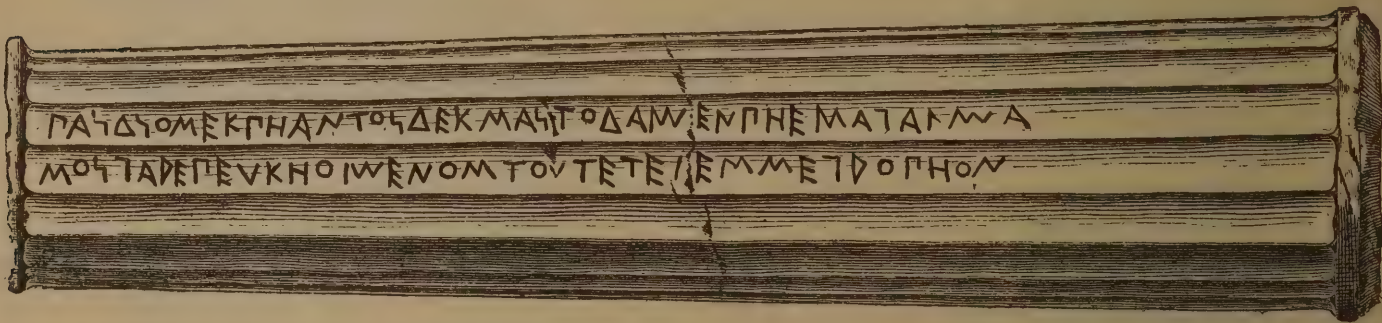 ΠΑΙΔΙΟϺΕΚΠΗΑΝΤΟΙΔΕΚϺΑΙΤΟΔΑΜΕΝΠΗΕϺΑΓΑΛΜΑ
ϺΟΙΓΑΡΕΠΕΥΚΗΟΜΕΝΟϺΤΟΥΤΕΤΕΛΕϺϺΕΓΡΟΠΗΟΝ